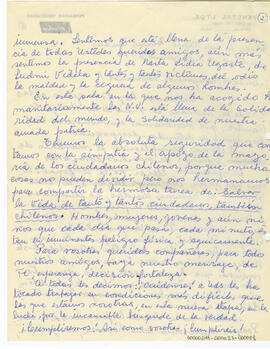 2
inmensa. Sentimos que está llena de la presen-
cia de todos Ustedes queridos amigos, aún más
sentimos la presencia de Marta Lidia Ugarte, de
Videla y tantos y tantos víctimas, del odio
la maldad y la ceguera de algunos hombres.
En esta casa en la que nos ha acogido
manitariamente las N.U. está llena de la Solida
ridad del mundo, y la Solidaridad de nuestra
amada patria.
Tenemos la absoluta seguridad que con
tamos con la simpatía y el apoyo de la mayo
ría de los ciudadanos chilenos, porque muchas
cosas no pueden dividir pero nos hermanamos
para compartir la hermosa tarea de: Salvar
la vida de tanto y tantos ciudadanos, también
chilenos. Hombres, mujeres, jóvenes y aún ni
ños que cada día que pasa, cada minuto, es
tán en inminente peligro física y síquicamente.
Para vosotros queridos compañeros, para todos
nuestros amigos vaya nuestro mensaje, de
Fe, esperanza, decisión, fortaleza.
A todos les decimos: ¡Cuídense! a Uds les ha
tocado trabajar en condiciones más difíciles que
las que estamos nosotros, en esta nueva etapa, en la
lucha por la incansable búsqueda de la verdad
¡